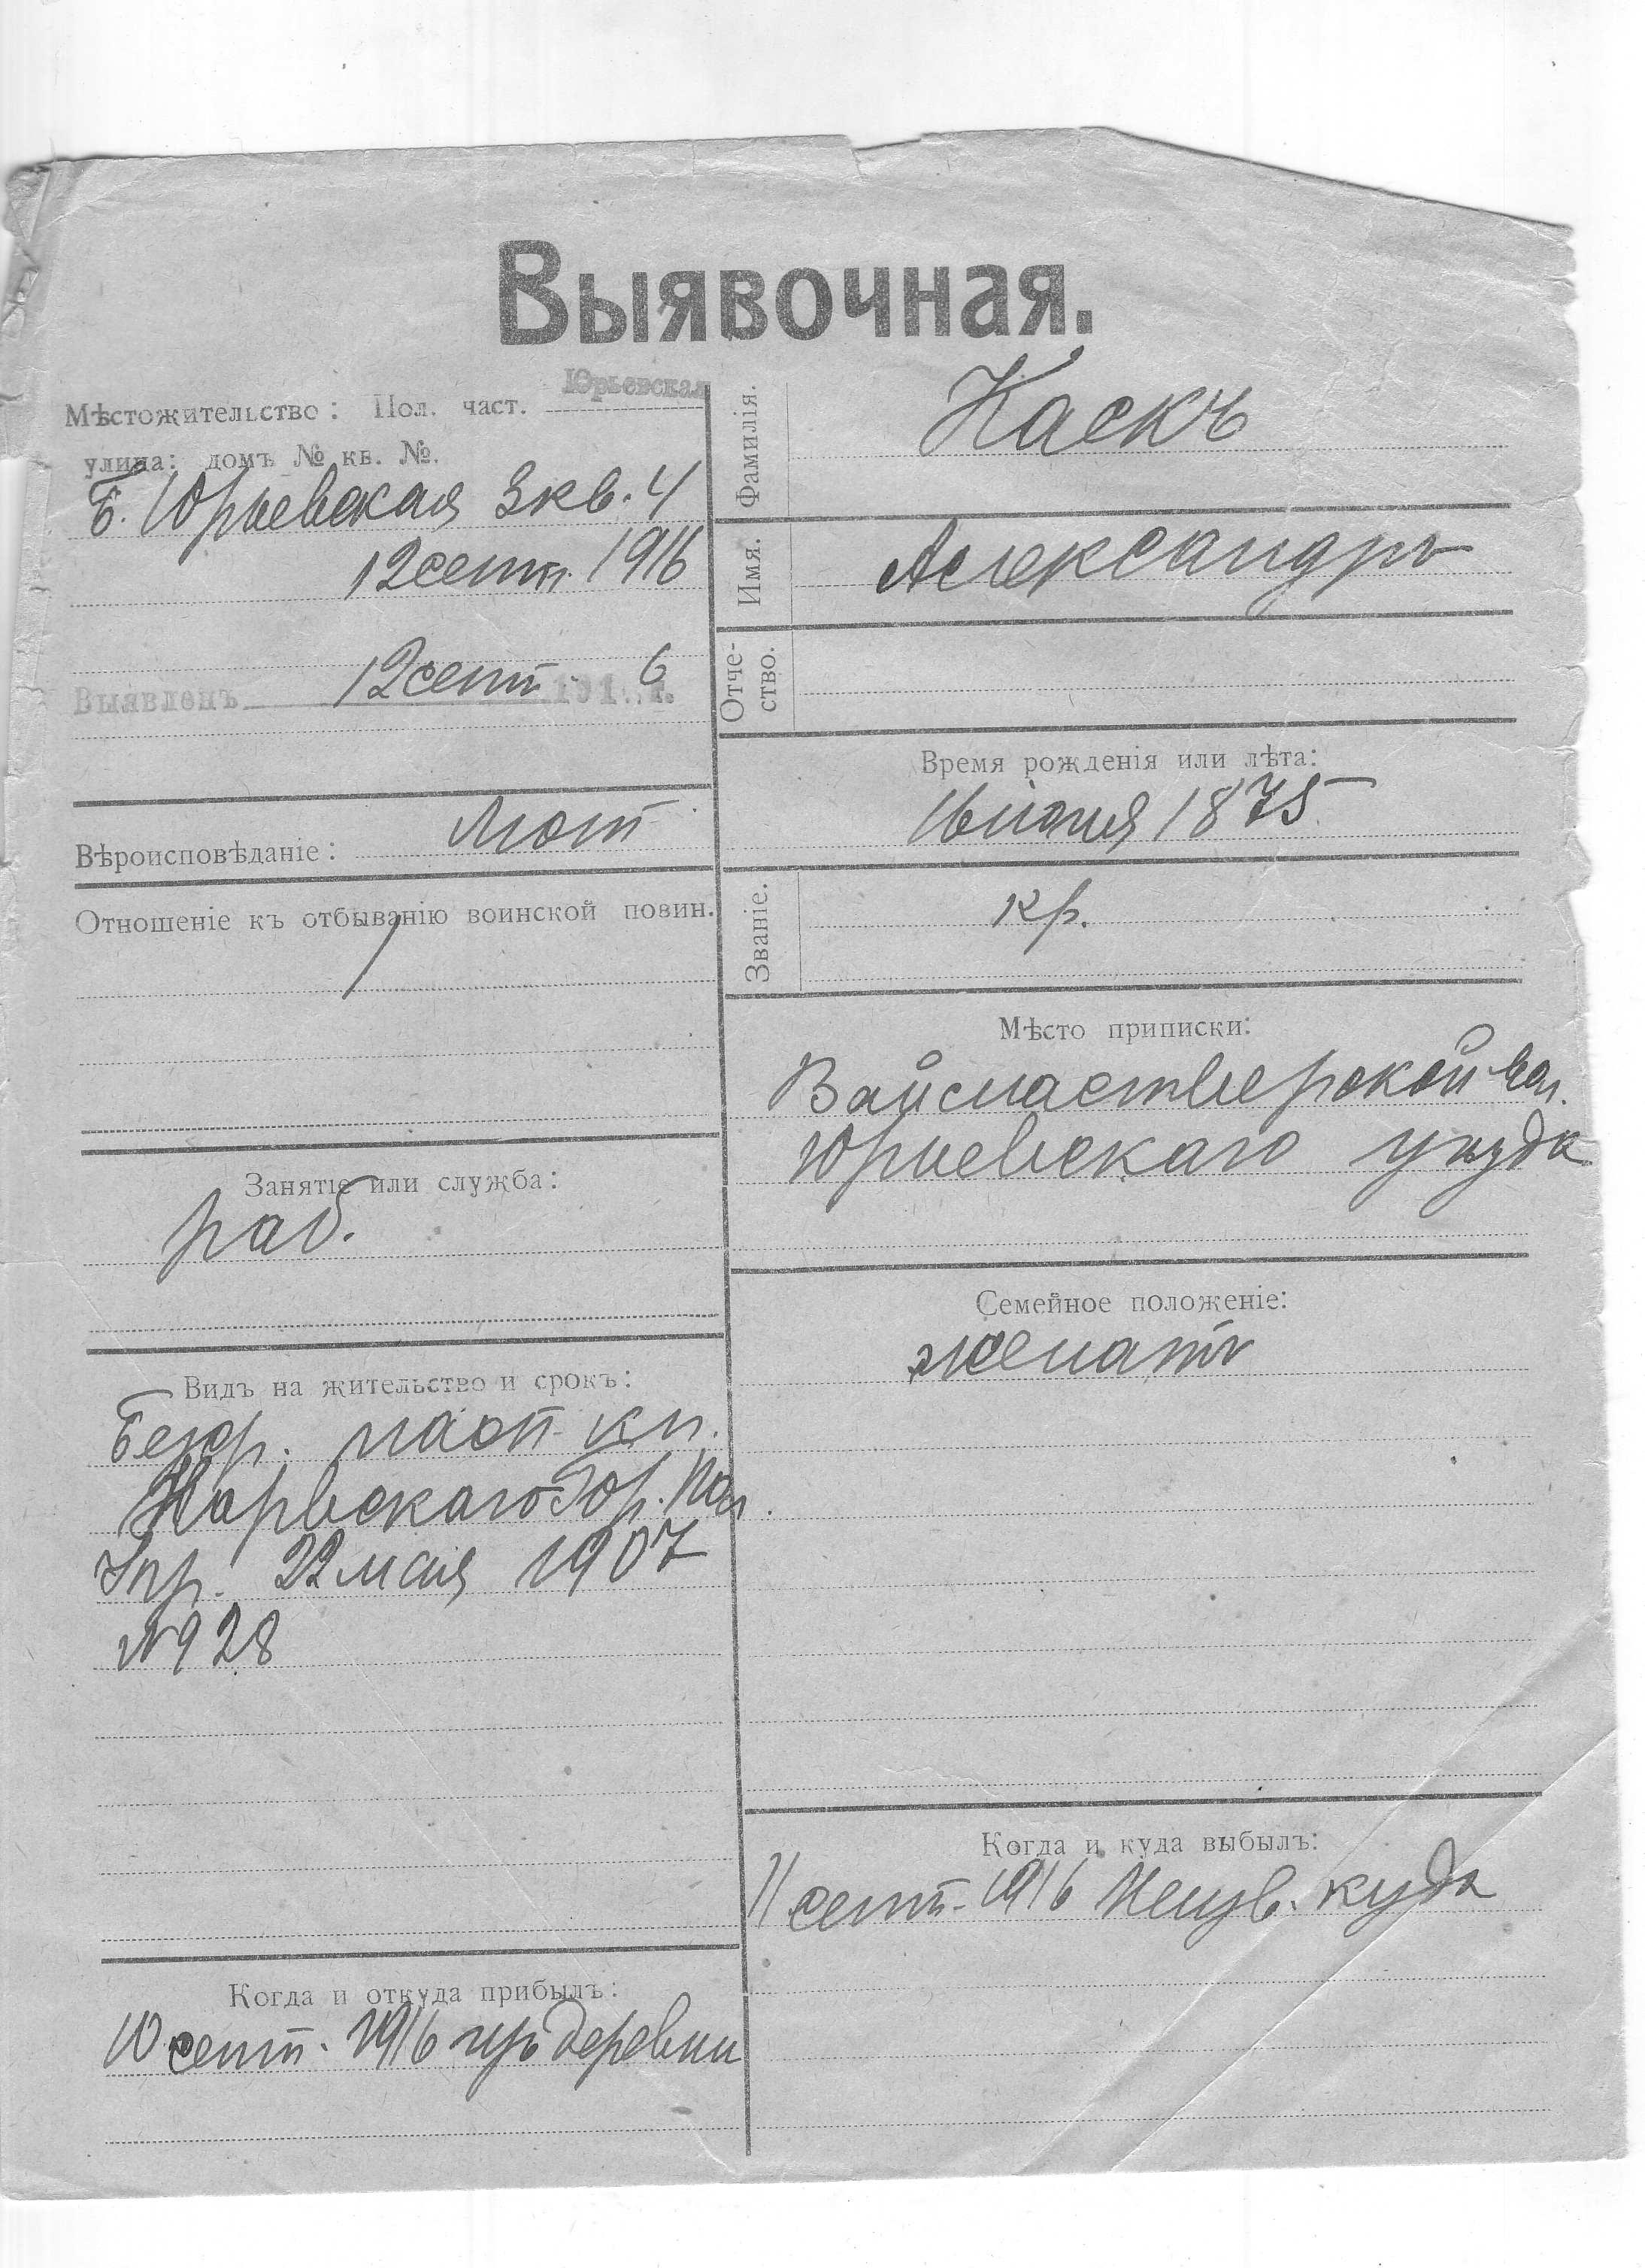 Выявочная.
Мѣстожительство: Пол. част. Юрьевская
улица: домъ № кв. №.
Б. Юрьевская 3 кв. 4
12 сент. 1916
Выявленъ 12 сент 1916 г.
Вѣроисповѣданіе: Лют
Отношеніе къ отбыванію воинской повин.
Занятіе или служба:
раб.
Видъ на жительство и срокъ:
Безср. пасп. кн.
Нарвскаго Гор. Пол.
Упр. 22 мая 1907
№ 928
Когда и откуда прибылъ:
10 сент. 1916 изъ деревни
Фамилія. Каскъ
Имя. Александръ
Отче-
ство.
Время рожденія или лѣта:
16 1875
Званіе. кр.
Мѣсто приписки:
вол.
Юрьевскаго уѣзда
Семейное положеніе:
женатъ
Когда и куда выбылъ:
11 сент. 1916 Неизв. куда